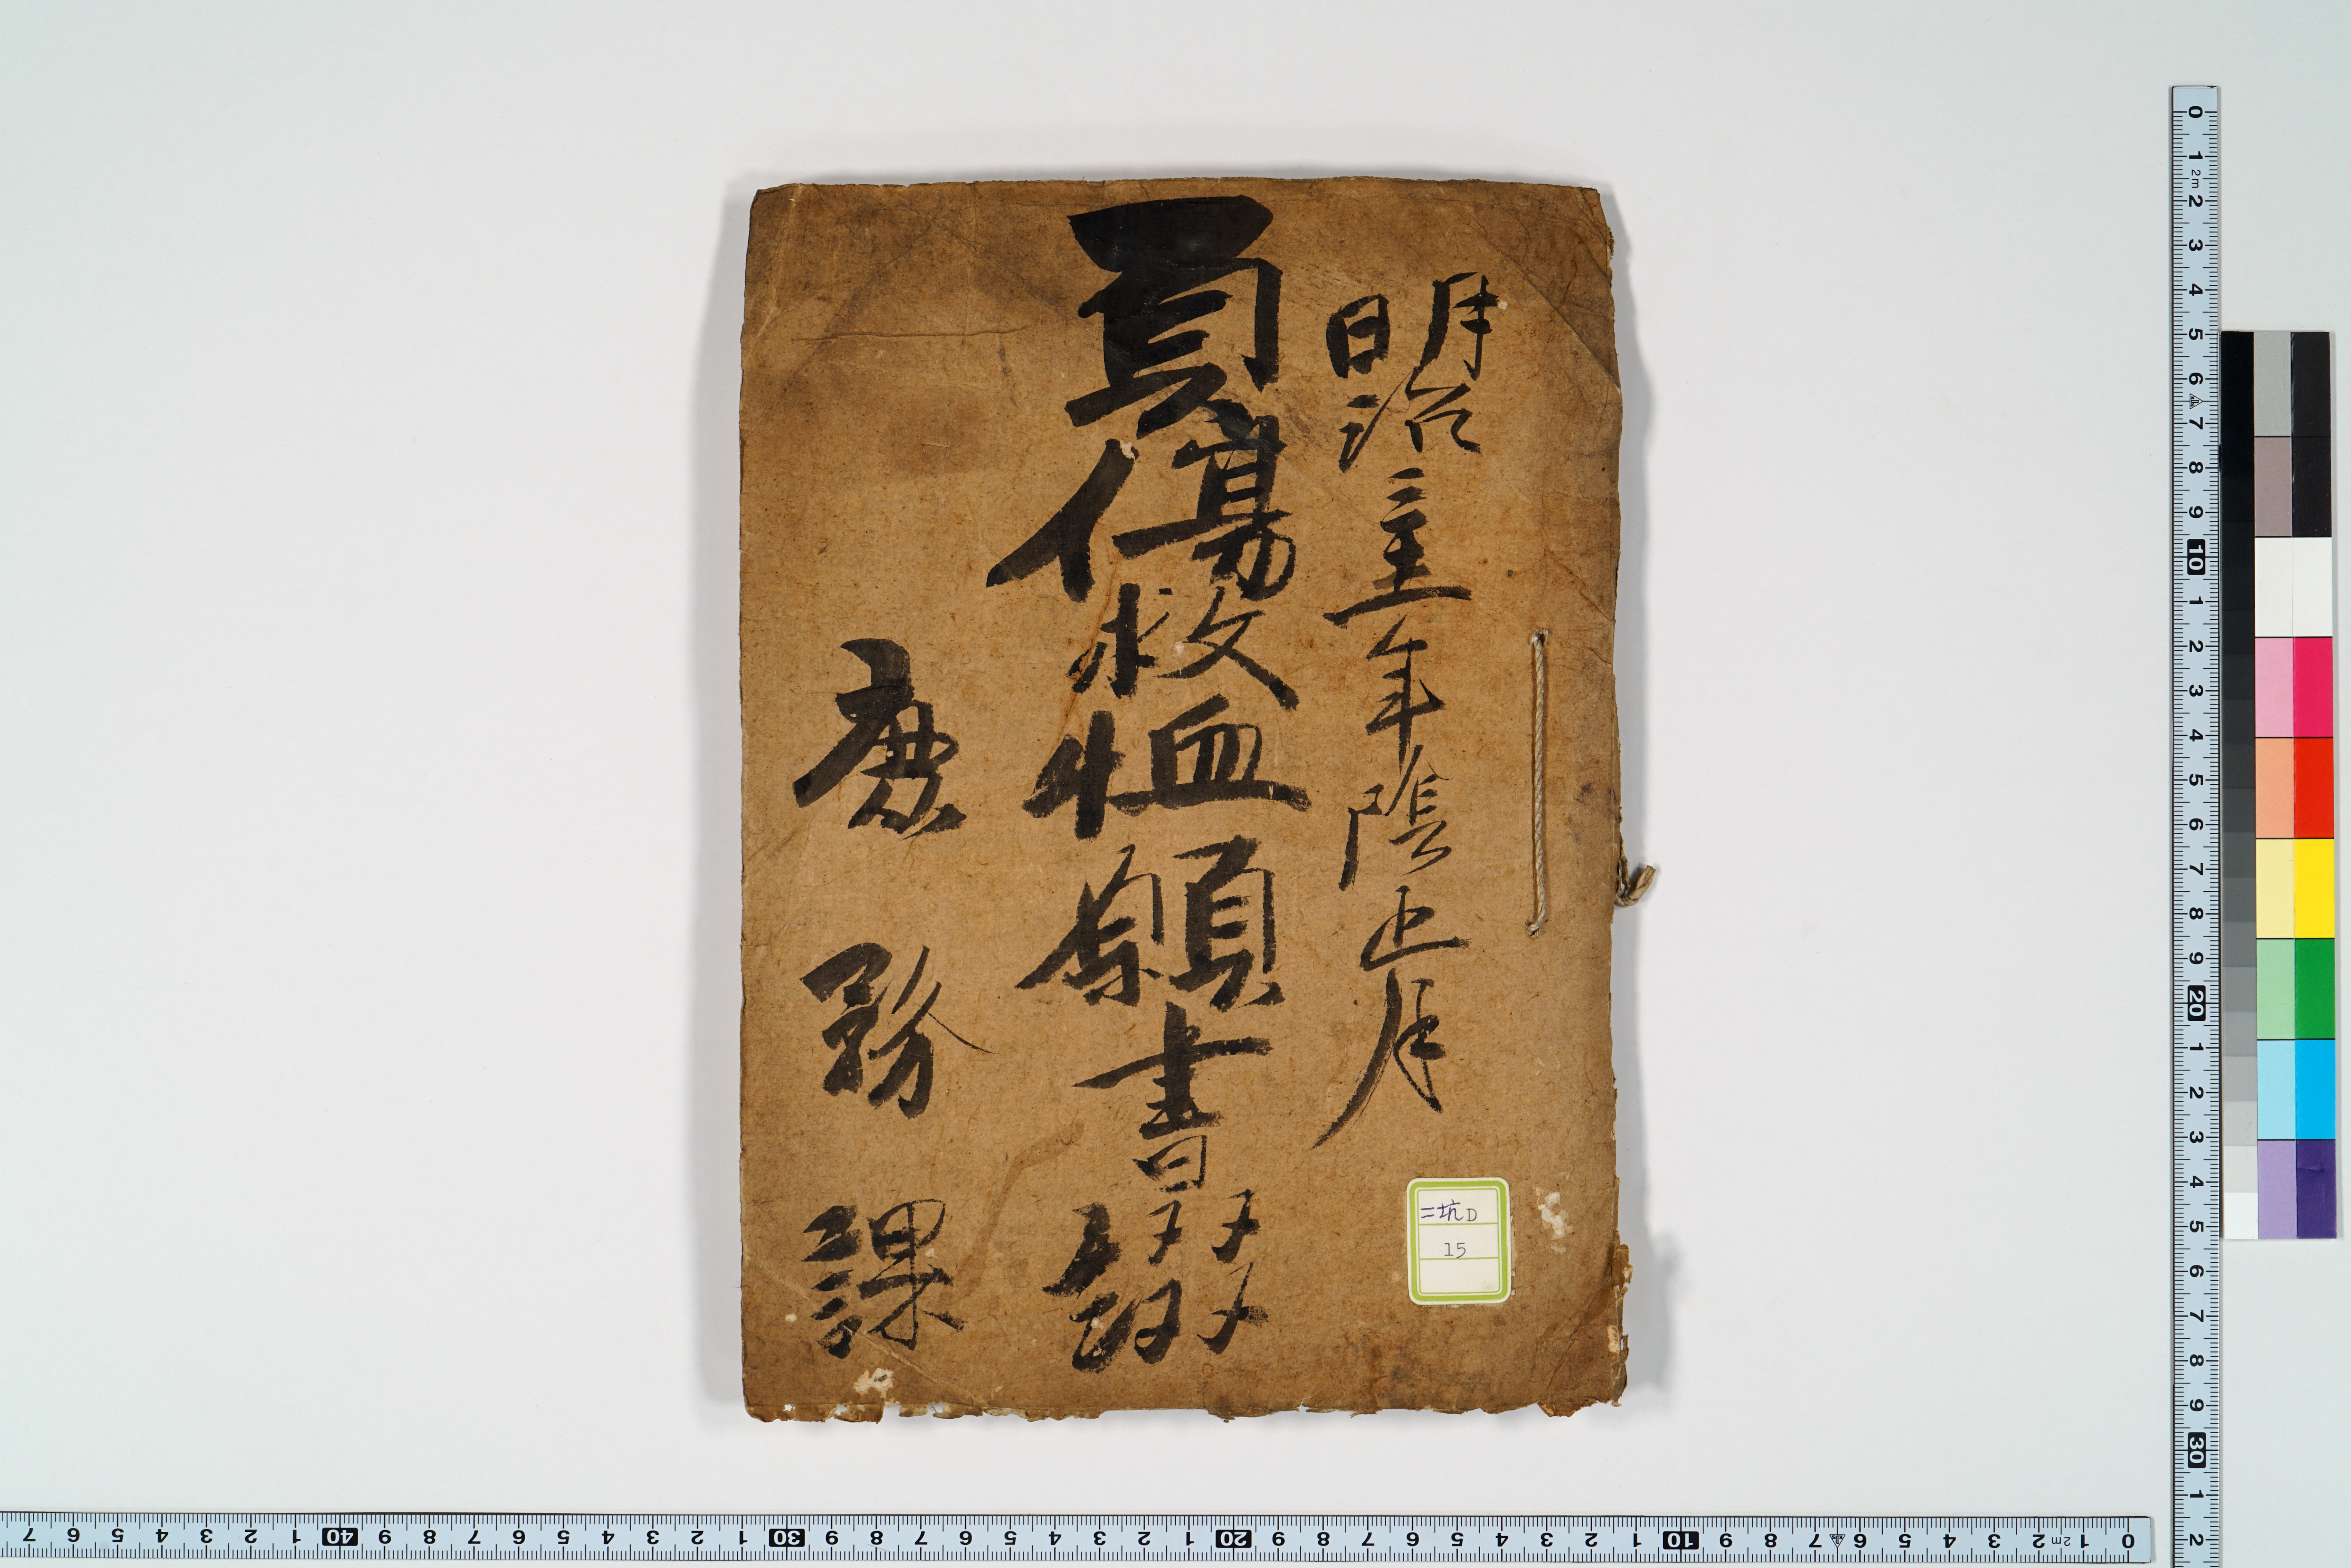 明治二十二年陰正月
負傷救恤願書綴
庶務課
二坑D
15